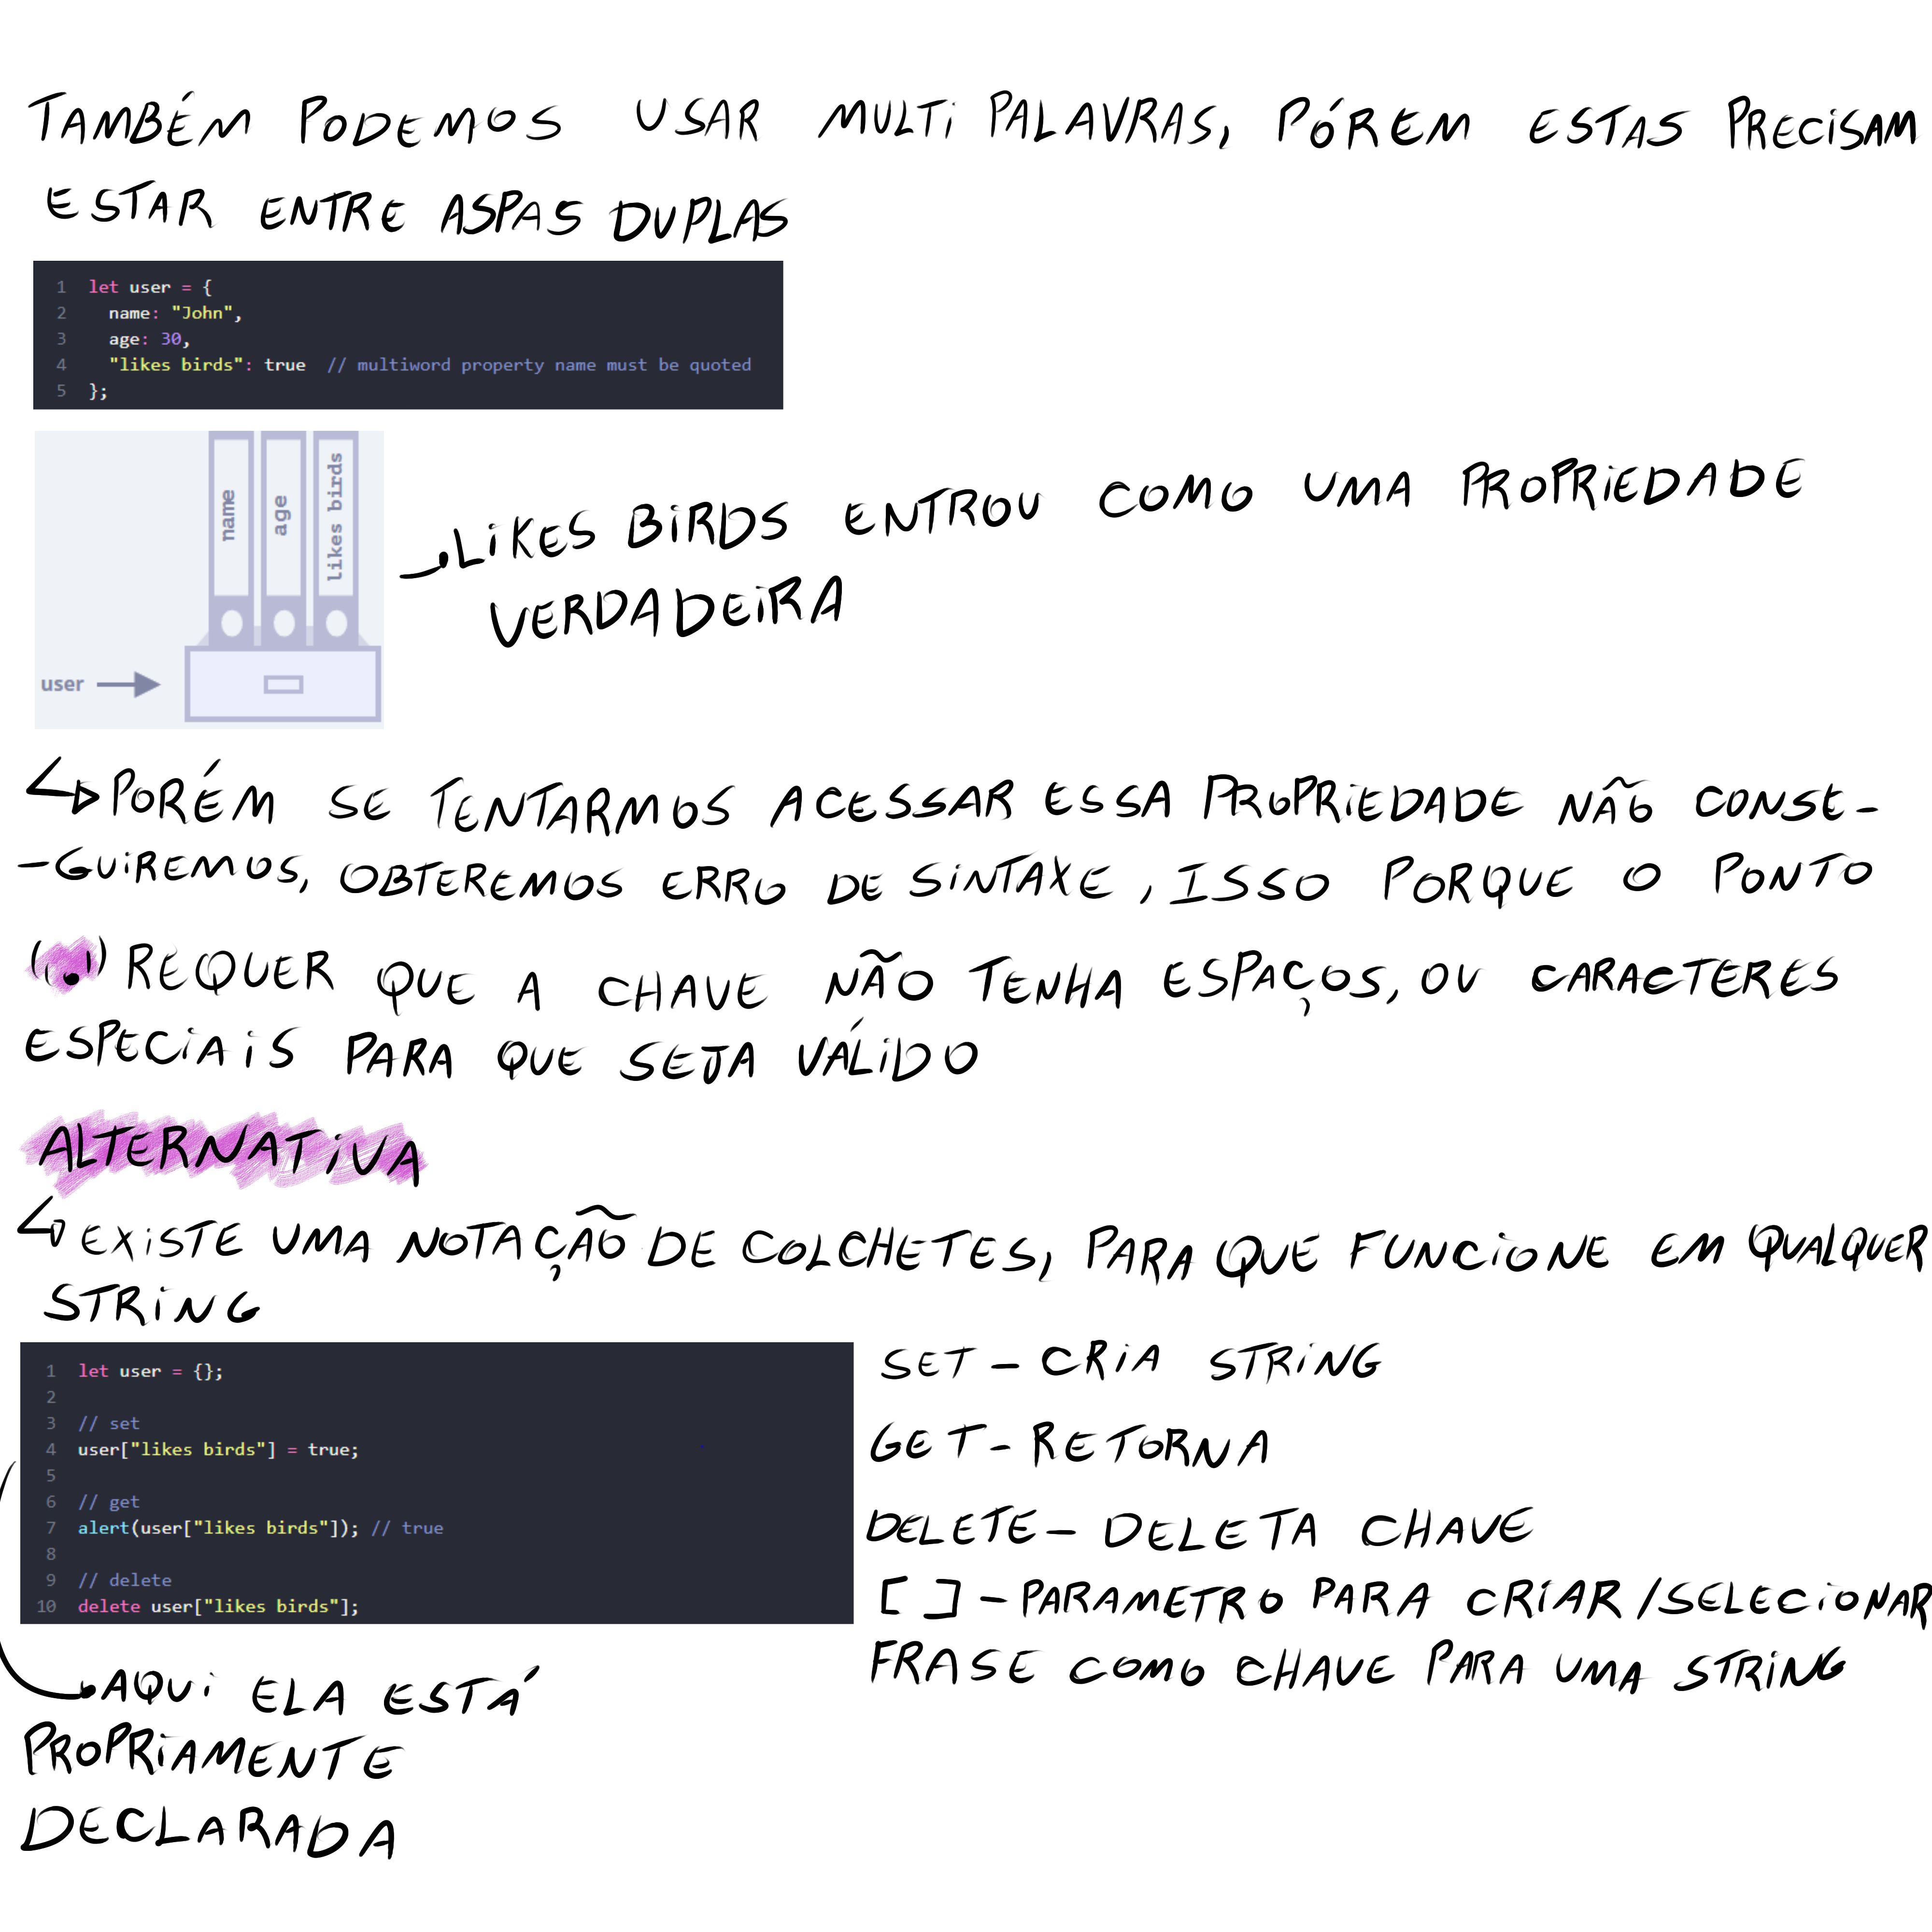 TAMBÉM PODEMOS USAR MULTI PALAVRAS, PÓREM ESTAS PRECISAM
ESTAR ENTRE ASPAS DUPLAS
1 let user = {
2 name: "John",
3 age: 30,
4 "likes birds": true // multiword property name must be quoted
5 };
name
age
likes birds
user
LIKES BIRDS ENTROU COMO UMA PROPRIEDADE
VERDADEIRA
PORÉM SE TENTARMOS ACESSAR ESSA PROPRIEDADE NÃO CONSE-
-GUIREMOS, OBTEREMOS ERRO DE SINTAXE, ISSO PORQUE O PONTO
('.') REQUER QUE A CHAVE NÃO TENHA ESPAÇOS, OU CARACTERES
ESPECIAIS PARA QUE SEJA VÁLIDO
ALTERNATIVA
EXISTE UMA NOTAÇÃO DE COLCHETES, PARA QUE FUNCIONE EM QUALQUER
STRING
1 let user = {};
2
3 // set
4 user["likes birds"] = true;
5
6 // get
7 alert(user["likes birds"]); // true
8
9 // delete
10 delete user["likes birds"];
SET - CRIA STRING
GET - RETORNA
DELETE - DELETA CHAVE
[ ] - PARAMETRO PARA CRIAR/SELECIONAR
FRASE COMO CHAVE PARA UMA STRING
AQUI ELA ESTÁ
PROPRIAMENTE
DECLARADA